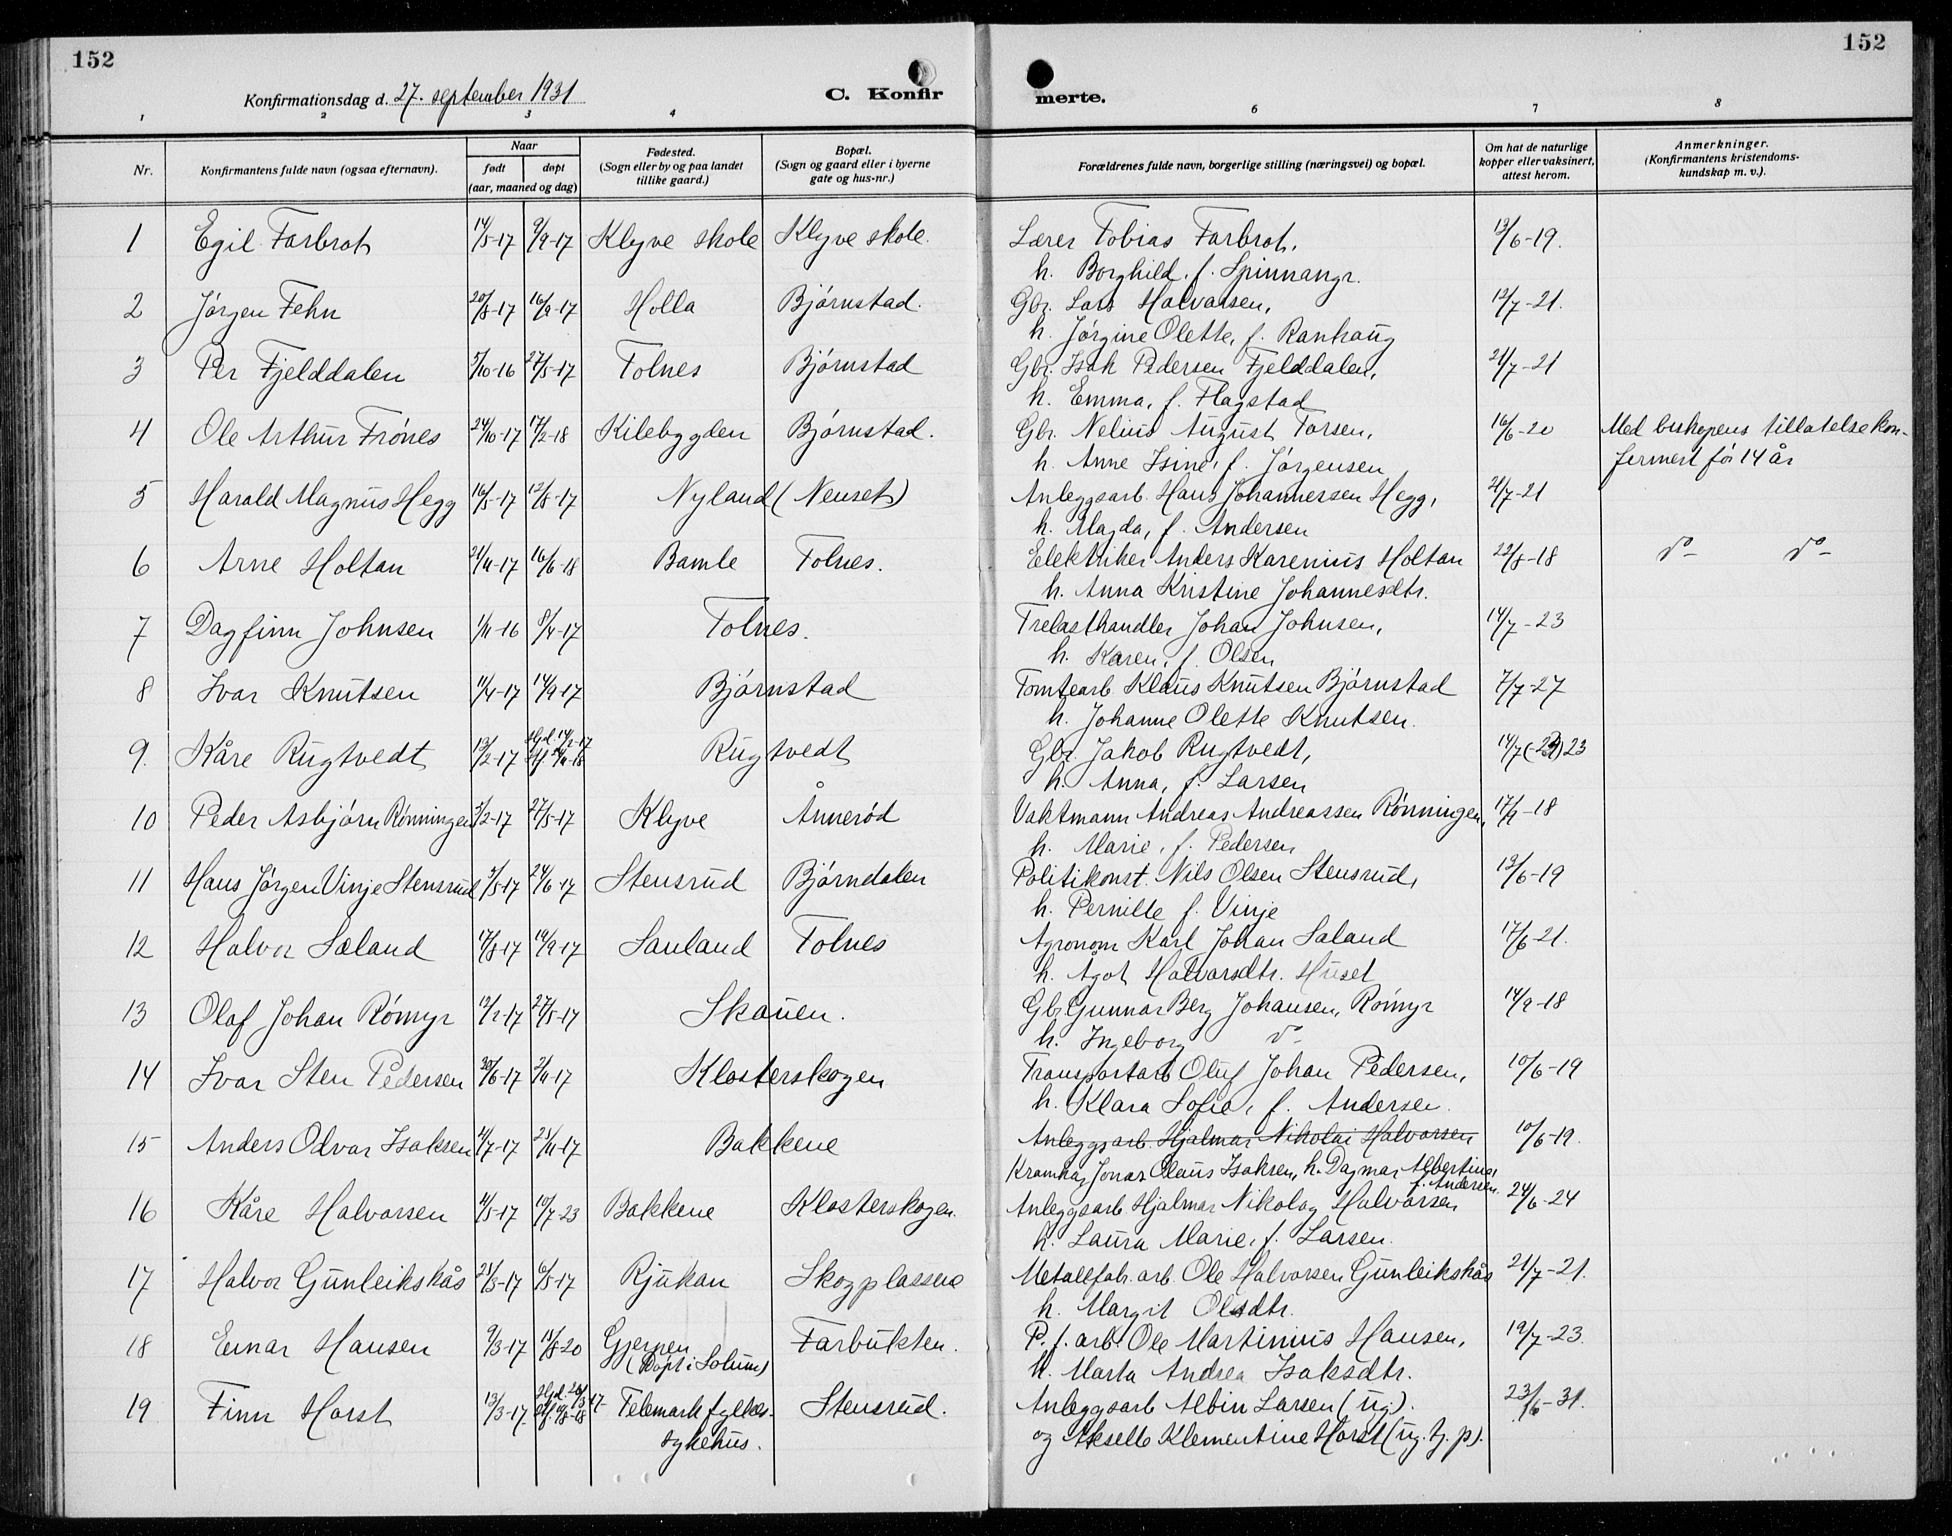 152
152
Konfirmationsdag d. 27. september 1931
C. Konfir
merte.
1 2 3 4 6 7 8
Nr.
Konfirmantens fulde navn (ogsaa efternavn).
Naar
født
døpt
(aar, maaned og dag)
Fødested.
(Sogn eller by og paa landet
tillike gaard.)
Bopæl.
(Sogn og gaard eller i byerne
gate og hus-nr.)
Forældrenes fulde navn, borgerlige stilling (næringsvei) og bopæl.
Om hat de naturlige
kopper eller vaksinert,
attest herom.
Anmerkninger.
(Konfirmantens kristendoms-
kundskap m. v.).
1 Egil Farbrot 14/5-17 9/9-17 Klyve skole Klyve skole. Lærer Tobias Farbrot, 13/6-19.
h. Borghild, f. Spinnangr.
2 Jørgen Fehn 20/8-17 16/9-17 Holla Bjørnstad. Gbr. Lars Halvorsen, 12/7-21.
h. Jørgine Olette, f. Ranhaug
3 Per Fjelddalen 5/10-16 27/5-17 Tolnes Bjørnstad Gbr. Isak Pedersen Fjelddalen, 21/7-21
h. Emma, f. Flagstad
4 Ole Arthur Frønes 24/10-17 17/2-18 Kilebygden Bjørnstad. Gbr. Nelius August Torsen, 16/6-20 Med biskopens tillatelse kon-
h. Anne Isine, f. Jørgensen fermert før 14 år
5 Harald Magnus Hegg 16/5-17 12/8-17 Nyland (Nenset) Anleggsarb. Hans Johannersen Hegg, 21/7-21
h. Magda, f. Andersen
6 Arne Holtan 24/11-17 16/6-18 Bamle Tolnes. Elektriker Anders Karenius Holtan 22/8-18 do- do-
h. Anna Kristine Johannesdtr.
7 Dagfinn Johnsen 1/11-16 8/4-17 Tolnes. Trelasthandler Johan Johnsen, 14/7-23
h. Karen, f. Olsen
8 Ivar Knutsen 11/4-17 14/9-17 Bjørnstad Tomtearb Klaus Knutsen Bjørnstad 7/7-27
h. Johanne Olette Knutsen.
9. Kåre Rugtvedt 13/2-17 Rugtvedt Gbr. Jakob Rugtvedt, 14/7 23
h. Anna, f. Larsen
10 Peder Asbjørn Rønningen 3/2-17 27/5-17 Klyve Ånnerød Vaktmann Andreas Andreassen Rønningen, 17/9-18
h. Marie, f. Pedersen
11 Hans Jørgen Vinje Stensrud 5/5-17 24/6-17 Stensrud Bjørndalen Politikonst. Nils Olsen Stensrud, 13/6-19
h. Pernille f. Vinje
12 Halvor Sæland 17/8-17 19/9-17 Sauland Tolnes Agronom Karl Johan Saland 17/6-21.
h. Ågot Halvorsdtr. Huset
13 Olaf Johan Rómyr 12/2-17 27/5-17 Skauen. Gbr Gunnar Berg Johansen, Rómyr 14/9-18
h. Ingeborg do-
14 Ivar Sten Pedersen 30/6-17 2/11-17 Klosterskogen Transportarb Oluf Johan Pedersen, 10/6-19
h. Klara Sofie, f. Andersen.
15 Anders Odvar Isaksen 2/7-17 25/11-17 Bakkene Anleggsarb. Hjalmar Nikolai Halvorsen 10/6-19.
Jonas Olaus Isaksen, h. Dagmar Albertine
f. Andersen.
16 Kåre Halvorsen 4/5-17 10/7-23 Bakkene Klosterskogen. Anleggsarb Hjalmar Nikolay Halvorsen 24/6-24
h. Laura Marie, f. Larsen.
17 Halvor Gunleikskås 21/3-17 6/5-17 Rjukan Skogplassene Metallfab. arb. Ole Halvorsen Gunleikskås 21/7-21.
h. Margit Olsdtr.
18 Einar Hansen 9/3-17 18/8-20 Gjerpen Farbukten. P. f. arb. Ole Martinius Hansen, 19/7-23.
(Døpt i Solum) h. Marta Andrea Isaksdtr.
19 Finn Horst 13/3-17 Telemark fylkes- Stensrud. Anleggsarb Albin Larsen (ug). 23/6-31.
sykehus. og Akselle Klementine Horst (ug. tj. p).